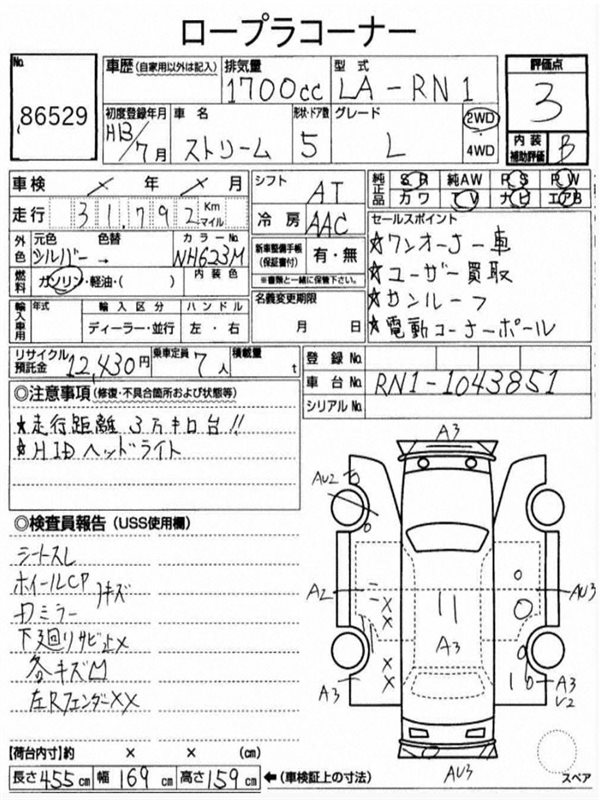 ロープラコーナー
No.
86529
車歴 (自家用以外は記入)
排気量
1700cc
型式
LA-RN1
評価点
3
初度登録年月
H13/7月
車名
ストリーム
形状・ドア数
5
グレード
L
2WD
4WD
内装補助評価
B
車検 × 年 × 月
シフト
AT
純正品
SR 純AW PS PW
カワ TV ナビ エアB
走行 31,792 Km マイル
冷房
AAC
セールスポイント
★ワンオーナー車
★ユーザー買取
★サンルーフ
★電動コーナーポール
外色
元色 色替
シルバー →
カラーNo.
NH623M
新車整備手帳(保証書付)
有・無
※書類と一緒に保管下さい。
燃料
ガソリン・軽油・( )
内装色
輸入車用
年式
輸入区分
ハンドル
ディーラー・並行
左・右
名義変更期限
月 日
リサイクル預託金
12,430円
乗車定員
7人
積載量
t
登録No.
車台No.
RN1-1043851
シリアルNo.
◎注意事項 (修復・不具合箇所および状態等)
★走行距離 3万キロ台!!
★HIDヘッドライト
◎検査員報告 (USS使用欄)
シートスレ
ホイールCP キズ
ミラー
下廻りサビ止×
各キズ凹
左RフェンダーXX
A3
AU2
A2
AU3
A3
A3
A3
U2
AU3
スペア
【荷台内寸】約 × × (cm)
長さ 455cm 幅 169cm 高さ 159cm ←(車検証上の寸法)